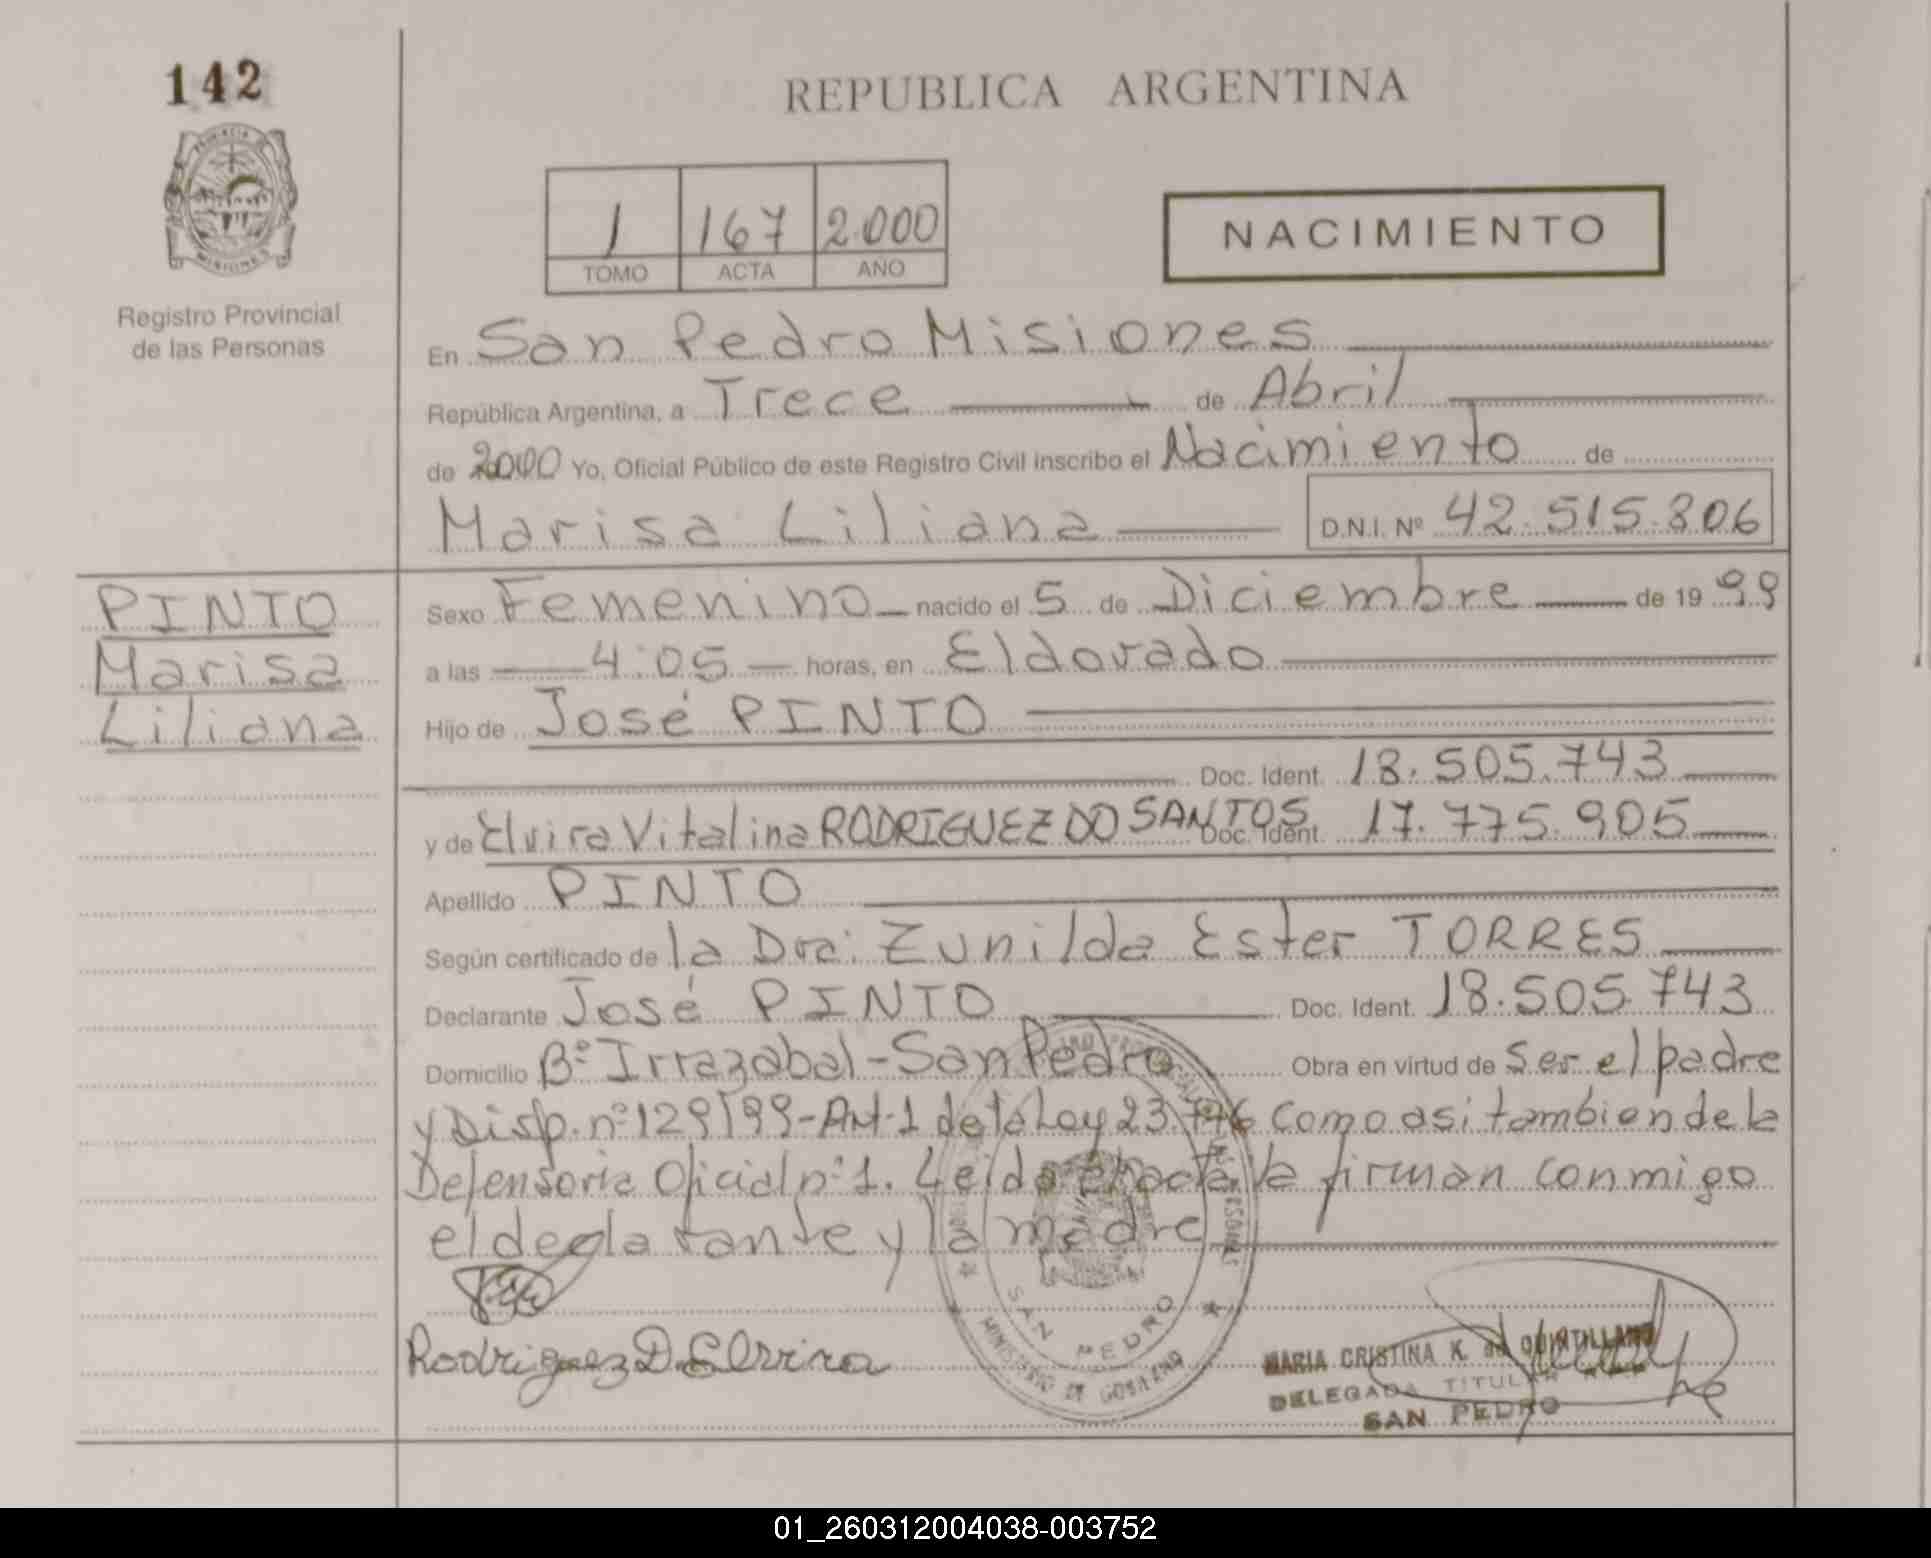 142
REPUBLICA ARGENTINA
PROVINCIA DE
MISIONES
Registro Provincial
de las Personas
1 167 2.000
TOMO ACTA AÑO
NACIMIENTO
En San Pedro Misiones
República Argentina, a Trece de Abril
de 2000 Yo, Oficial Público de este Registro Civil inscribo el Nacimiento de
Marisa Liliana D.N.I. Nº 42.515.306
PINTO
Marisa
Liliana
Sexo Femenino nacido el 5 de Diciembre de 19 99
a las 4:05 horas, en Eldorado
Hijo de José PINTO
Doc. Ident. 18.505.743
y de Elvira Vitalina RODRIGUEZ DO SANTOS Doc. Ident. 17.775.905
Apellido PINTO
Según certificado de la Dra: Zunilda Ester TORRES
Declarante José PINTO Doc. Ident. 18.505.743
Domicilio Bº Irrazabal - San Pedro Obra en virtud de Ser el padre
y Disp. nº 129/99 - Art. 1 de la Ley 23.776 como asi tambien de la
Defensoria Oficial nº 1. Leida el acta la firman conmigo
el declarante y la madre
Rodriguez D. Elvira
SAN PEDRO
MINISTERIO DE GOBIERNO
MARIA CRISTINA K. de QUINTILLANO
DELEGADA TITULAR
SAN PEDRO
01_260312004038-003752